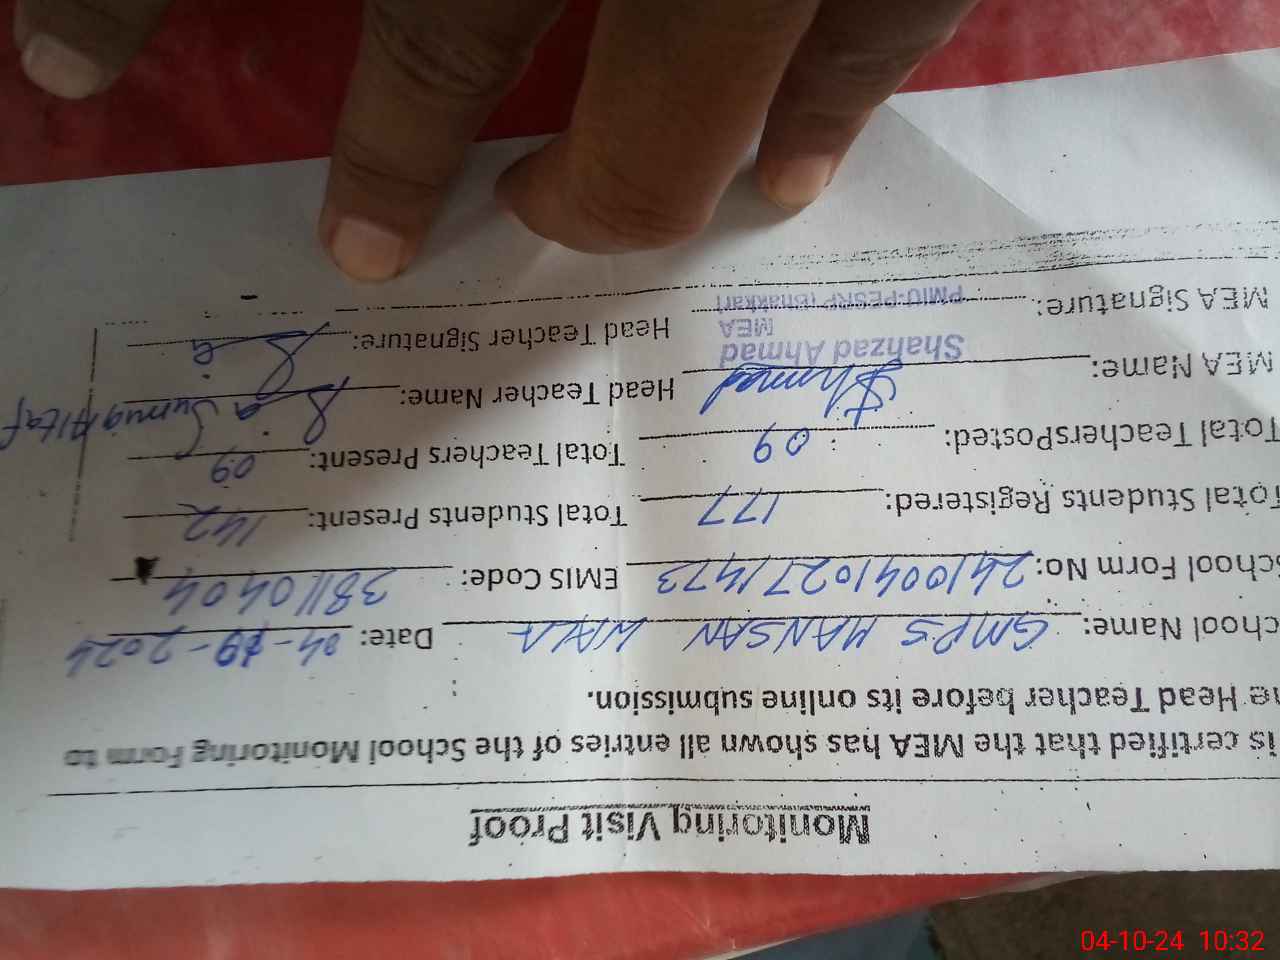 Monitoring Visit Proof
is certified that the MEA has shown all entries of the School Monitoring Form to
he Head Teacher before its online submission.
chool Name: GMPS MANSAN WALA Date: 04-09-2024
School Form No: 24100410271473 EMIS Code: 38110404
Total Students Registered: 177 Total Students Present: 142
Total TeachersPosted: 09 Total Teachers Present: 09
MEA Name: Ahmad Head Teacher Name: Altaf
Shahzad Ahmad
MEA
PMIU-PESRP (Bhakkar)
MEA Signature: Head Teacher Signature:
04-10-24 10:32